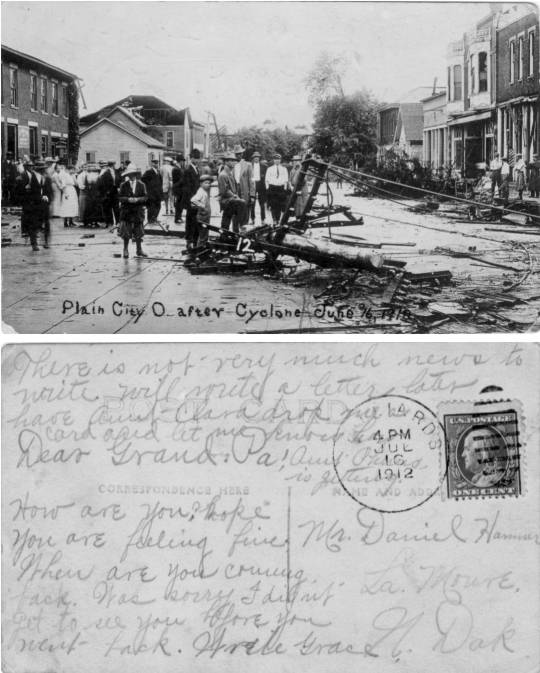 12
Plain City O. after Cyclone June 16, 1912
There is not very much news to
write. will write a letter later
have Aunt Clara drop me a
card and let me know
Dear Grand Pa!
is getting
POST CARD
CORRESPONDENCE HERE
NAME AND ADD
LARDS
4 PM
JUL
16
1912
U.S. POSTAGE
ONE CENT
How are you, hope
you are feeling fine.
When are you coming
back. Was sorry I didn't
get to see you before you
went back. Grace
Mr. Daniel
La. Moure.
N. Dak